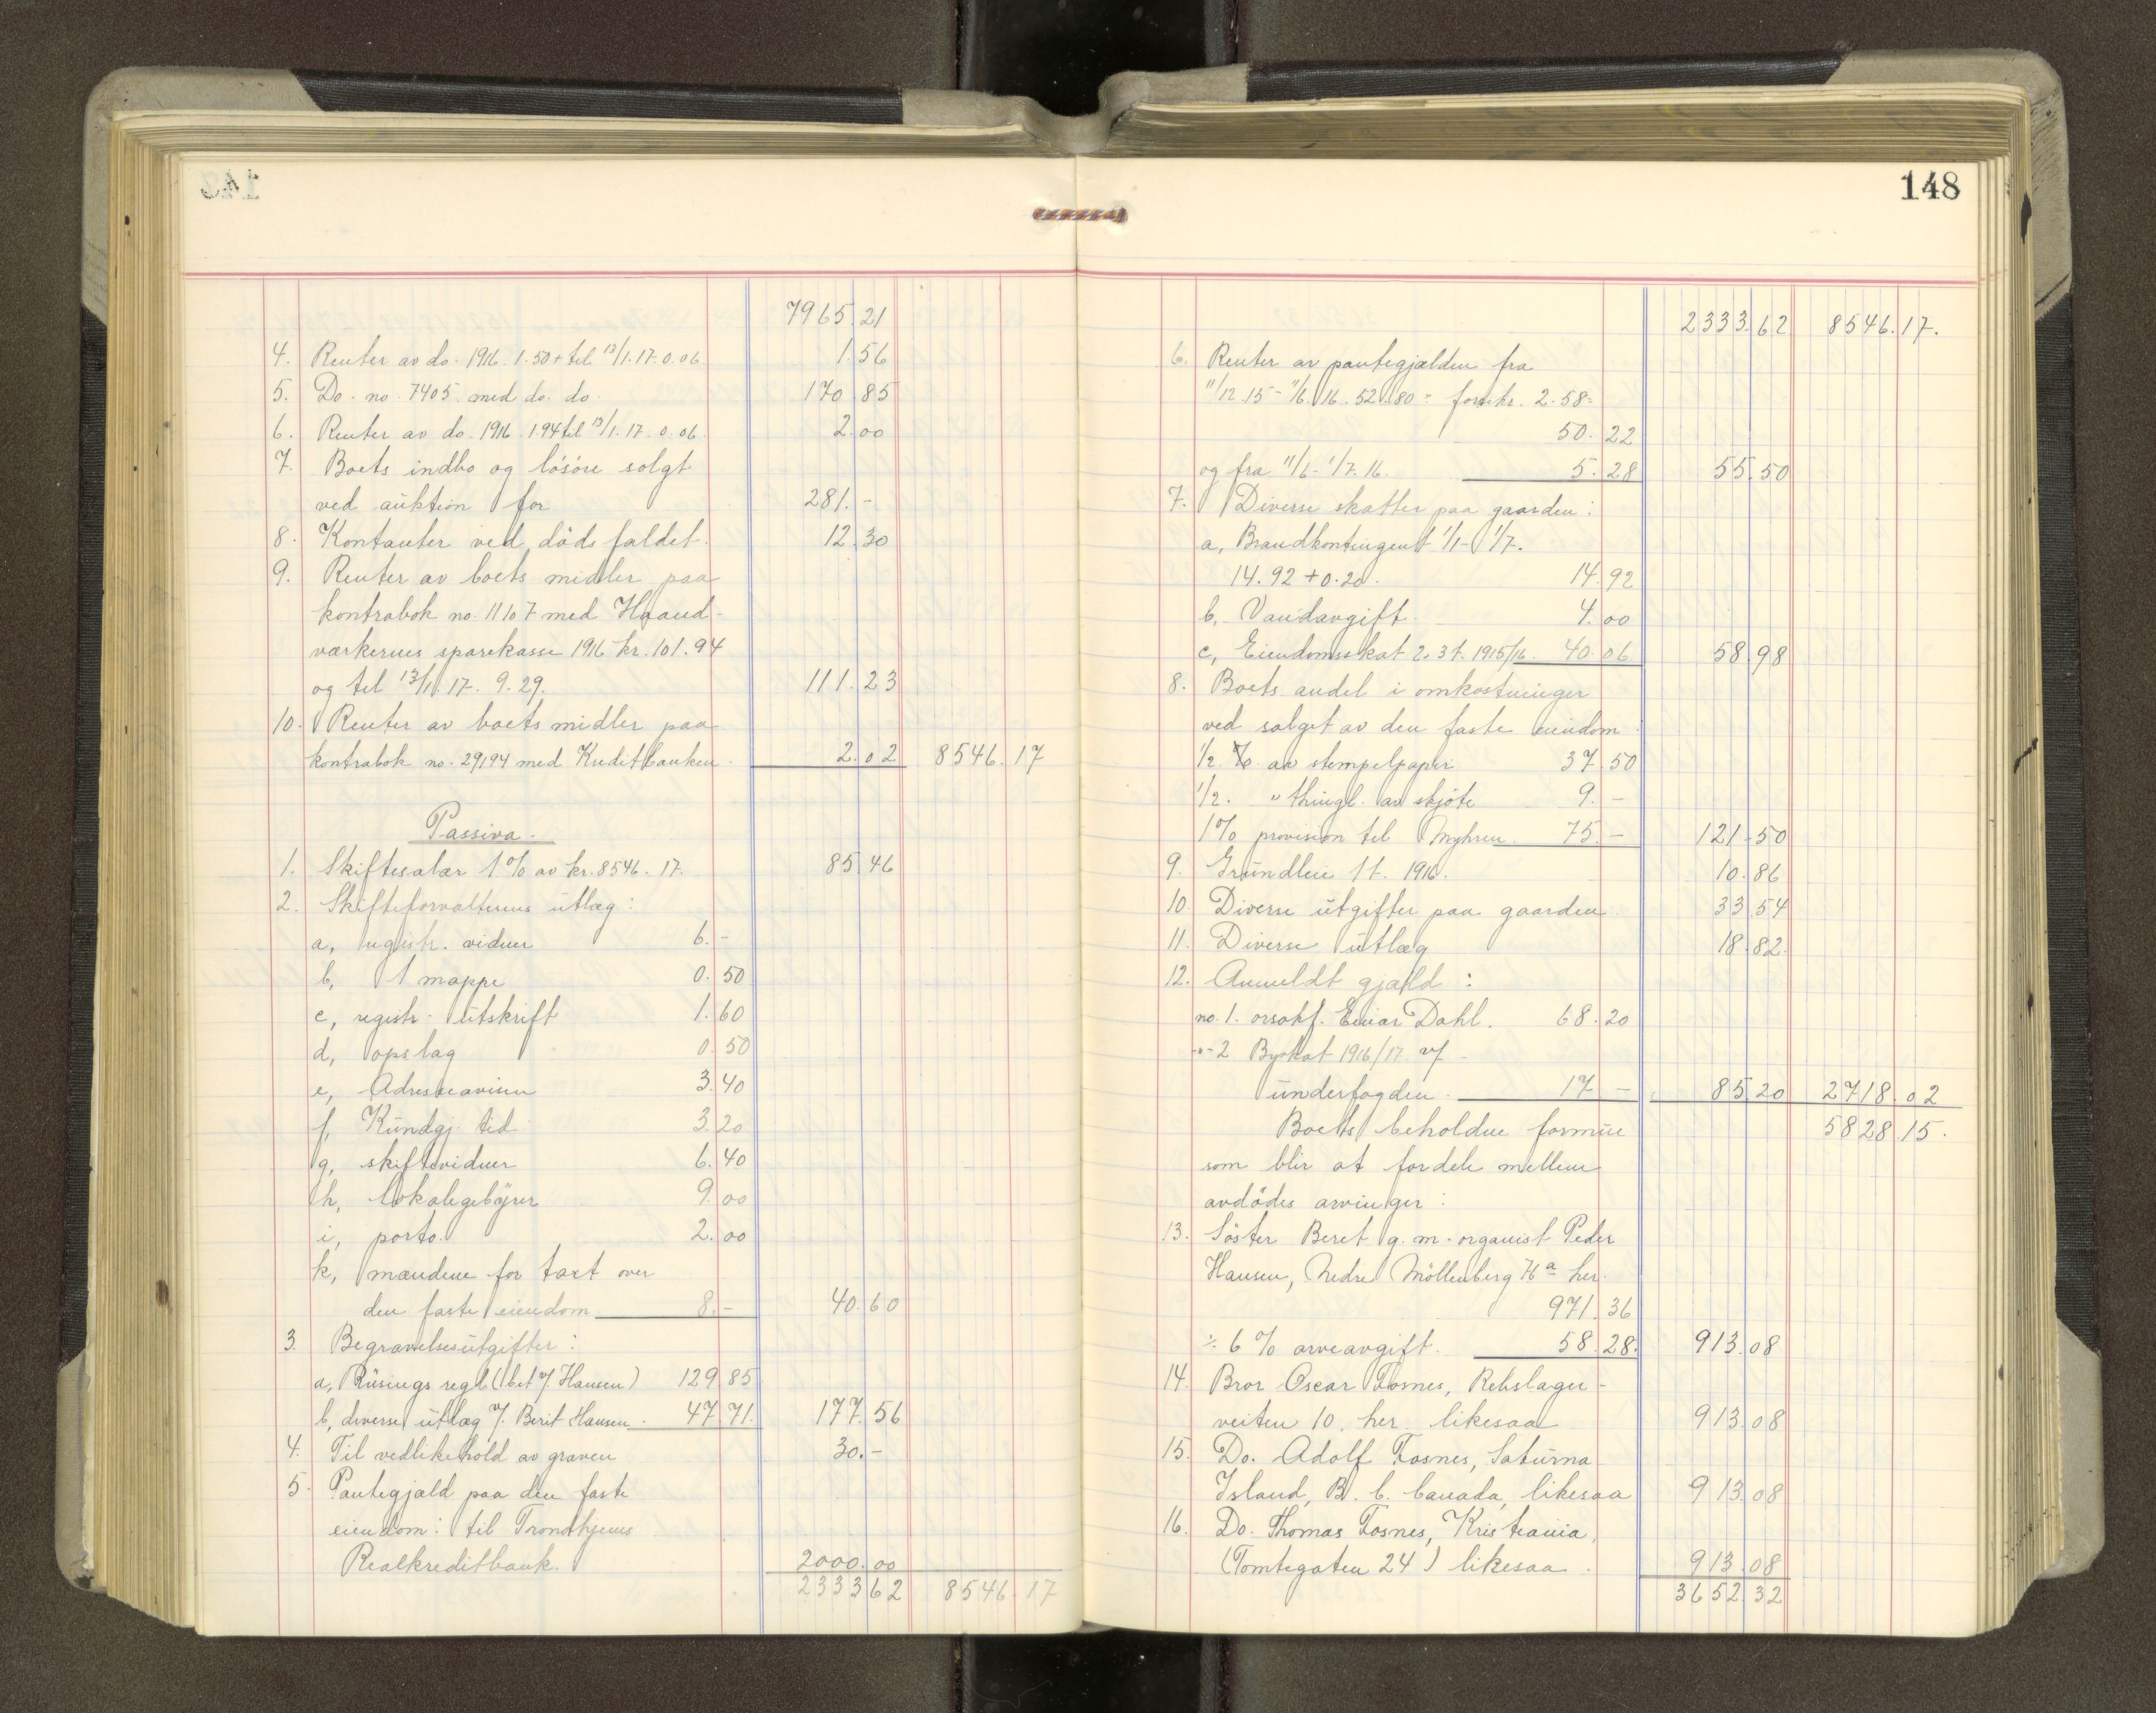 7965.21
4. Renter av do. 1916. 1.50 + til 13/1.17. 0.06 1.56
5. Do. no. 7405 med do. do. 170.85
6. Renter av do. 1916. 1.94 til 13/1.17. 0.06. 2.00
7. Boets indbo og lösöre solgt
ved auktion for 281.-
8. Kontanter ved dödsfaldet. 12.30
9. Renter av boets midler paa
kontrabok no. 11107 med Haand-
værkernes sparekasse 1916 kr. 101.94
og til 13/1.17. 9.29. 111.23
10. Renter av boets midler paa
kontrabok no. 29194 med Kreditbanken. 2.02 8546.17
Passiva.
1. Skiftesalær 1% av kr. 8546.17. 85.46
2. Skifteforvalterens utlæg:
a, registr. vidner 6.-
b, 1 mappe 0.50
c, registr. utskrift 1.60
d, opslag 0.50
e, Adresseavisen 3.40
f, Kundgj. tid. 3.20
g, skiftevidner 6.40
h, lokalegebyrer 9.00
i, porto. 2.00
k, mændene for taxt over
den faste eiendom 8.- 40.60
3. Begravelsesutgifter:
a, Rüsings regl (bet v/. Hansen) 129.85
b, diverse utlæg v/. Berit Hansen. 47.71. 177.56
4. Til vedlikehold av graven 30.-
5. Pantegjæld paa den faste
eiendom: til Trondhjems
Realkreditbank. 2000.00
2333.62 8546.17
148
2333.62 8546.17.
6. Renter av pantegjælden fra
11/12.15 - 11/6.16. 52.80 ÷ forsikr. 2.58=
50.22
og fra 11/6 - 1/7.16. 5.28 55.50
7. Diverse skatter paa gaarden:
a, Brandkontingent 1/1 - 1/7.
14.92 + 0.20. 14.92
b, Vandavgift. 4.00
c, Eiendomsskat 2. 3 t. 1915/16. 40.06 58.98
8. Boets andel i omkostninger
ved salget av den faste eiendom:
1/2. av stempelpapir 37.50
1/2. " thingl. av skjöte 9.-
1% provision til Myhren. 75.- 121.50
9. Grundleie 1 t. 1916. 10.86
10. Diverse utgifter paa gaarden. 33.54
11. Diverse utlæg 18.82.
12. Anmeldt gjæld:
no. 1. orsakf. Einar Dahl. 68.20
-"- 2 Byskat 1916/17 v/
underfogden. 17.- 85.20 2718.02
Boets beholdne formue 5828.15.
som blir at fordele mellem
avdödes arvinger:
13. Söster Beret g. m. organist Peder
Hansen, Nedre Möllenberg 76a her.
971.36
÷ 6% arveavgift. 58.28. 913.08
14. Bror Oscar Fosnes, Rebslager-
veiten 10, her, likesaa 913.08
15. Do. Adolf Fosnes, Saturna
Island, B. C. Canada, likesaa 913.08
16. Do. Thomas Fosnes, Kristiania,
(Tomtegaten 24) likesaa. 913.08
3652.32